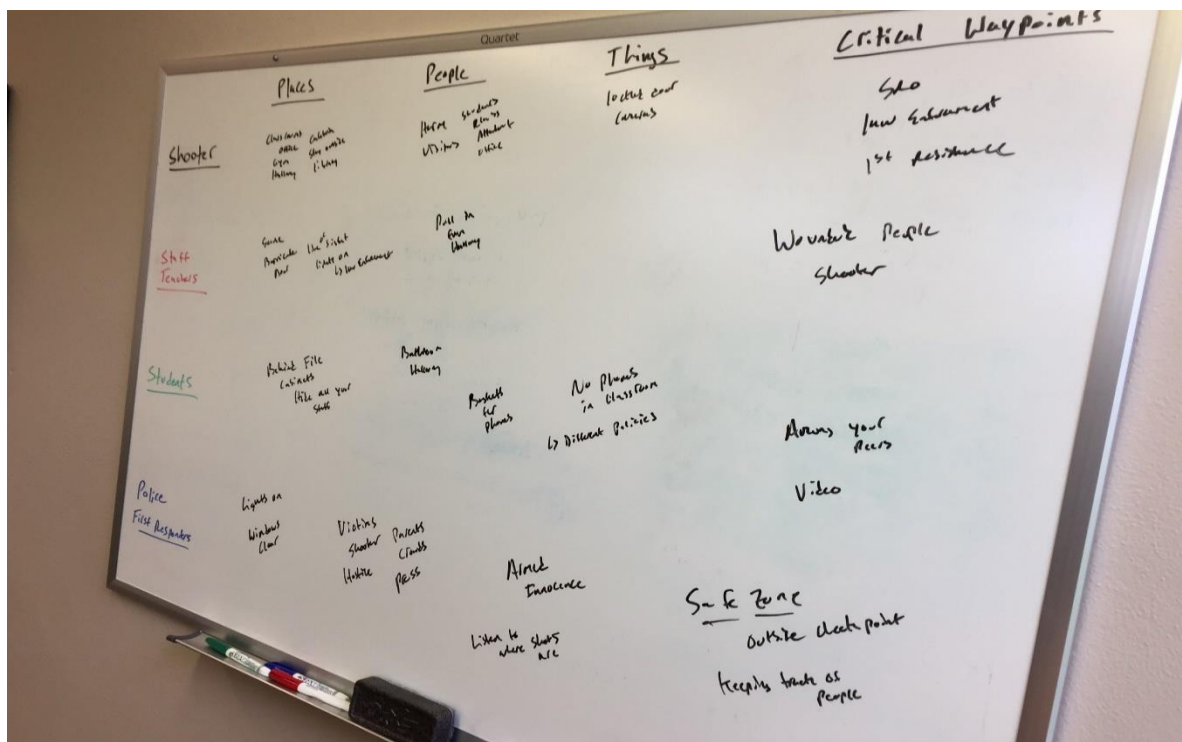 Quartet
Places People Things Critical Waypoints
Shooter
Classrooms
office
Gym Stay outside
Hallway Library
Students
Visitors
office
locked door
cameras
SRO
law Enforcement
1st Resistance
Staff
Teachers
Barricade line of sight
Door lights on
↳ law Enforcement
Pull in
from
Hallway
Wounded People
Shooter
Students
Behind File
Cabinets
Hide all your
stuff
Bathroom
Hallway
Baskets
for
phones
No Phones
in Classroom
↳ Different Policies
Among your
Peers
Video
Police
First Responders
Lights on
Windows
Clear
Victims
Shooter Parents
Hostile Crowds
Press
Armed
Innocence
Listen to
where shots
are
Safe Zone
Outside checkpoint
Keeping track of
People